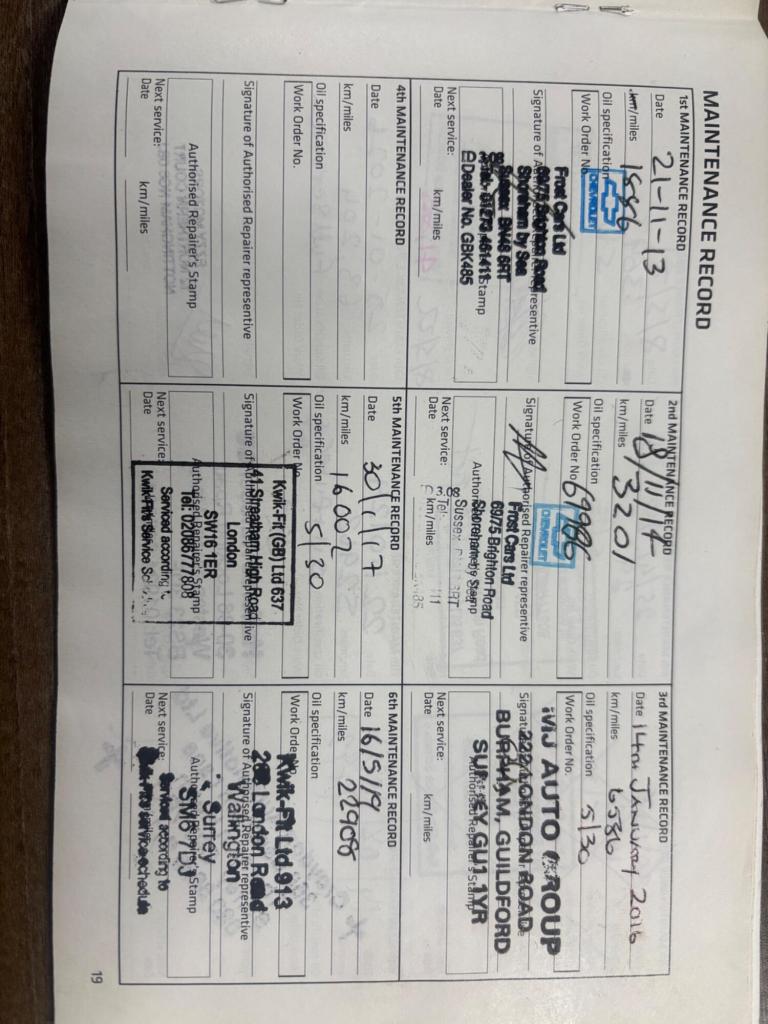 MAINTENANCE RECORD
1st MAINTENANCE RECORD
Date 21-11-13
km/miles 1886
Oil specification
CHEVROLET
Work Order No.
Frost Cars Ltd
Signature of Authorised Repairer representative
69/75 Brighton Road
Shoreham by Sea
Sussex BN46 6RT
Tel: 01273 461411 Stamp
Dealer No. GBK485
Next service:
Date km/miles
2nd MAINTENANCE RECORD
Date 18/11/14
km/miles 3201
Oil specification
CHEVROLET
Work Order No. 69986
Signature of Authorised Repairer representative
Frost Cars Ltd
69/75 Brighton Road
Shoreham by Sea
Stamp
Sussex
Tel:
Next service:
Date km/miles
3rd MAINTENANCE RECORD
Date 14TH JANUARY 2016
km/miles 6586
Oil specification 5/30
Work Order No.
MJ AUTO GROUP
222 LONDON ROAD
BURPHAM, GUILDFORD
SURREY GU1 1YR
Authorised Repairer's Stamp
Next service:
Date km/miles
4th MAINTENANCE RECORD
Date
km/miles
Oil specification
Work Order No.
Signature of Authorised Repairer representative
Authorised Repairer's Stamp
Next service:
Date km/miles
5th MAINTENANCE RECORD
Date 30/1/17
km/miles 16002
Oil specification 5/30
Work Order No.
Kwik-Fit (GB) Ltd 637
Signature of Authorised Repairer representative
41 Streatham High Road
London
SW16 1ER
Authorised Repairer's Stamp
Tel: 02086777808
Next service: Serviced according t
Date Kwik-Fits Service Sc
6th MAINTENANCE RECORD
Date 16/5/19
km/miles 22908
Oil specification
Work Order No.
Kwik-Fit Ltd 913
London Road
Signature of Authorised Repairer representative
Wallington
Surrey
Authorised Repairer's Stamp
SM6 7DJ
Next service: Serviced according to
Date Kwik-Fits service schedule
19